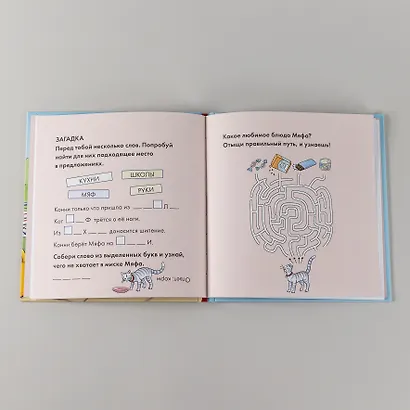 ЗАГАДКА
Перед тобой несколько слов. Попробуй
найти для них подходящее место
в предложениях.
КУХНИ
ШКОЛЫ
МЯФ
РУКИ
Конни только что пришла из П
Кот Ф трётся о её ноги.
Из Х доносится шипение.
Конни берёт Мяфа на И.
Собери слово из выделенных букв и узнай,
чего не хватает в миске Мяфа.
Ответ: корм
Какое любимое блюдо Мяфа?
Отыщи правильный путь, и узнаешь!